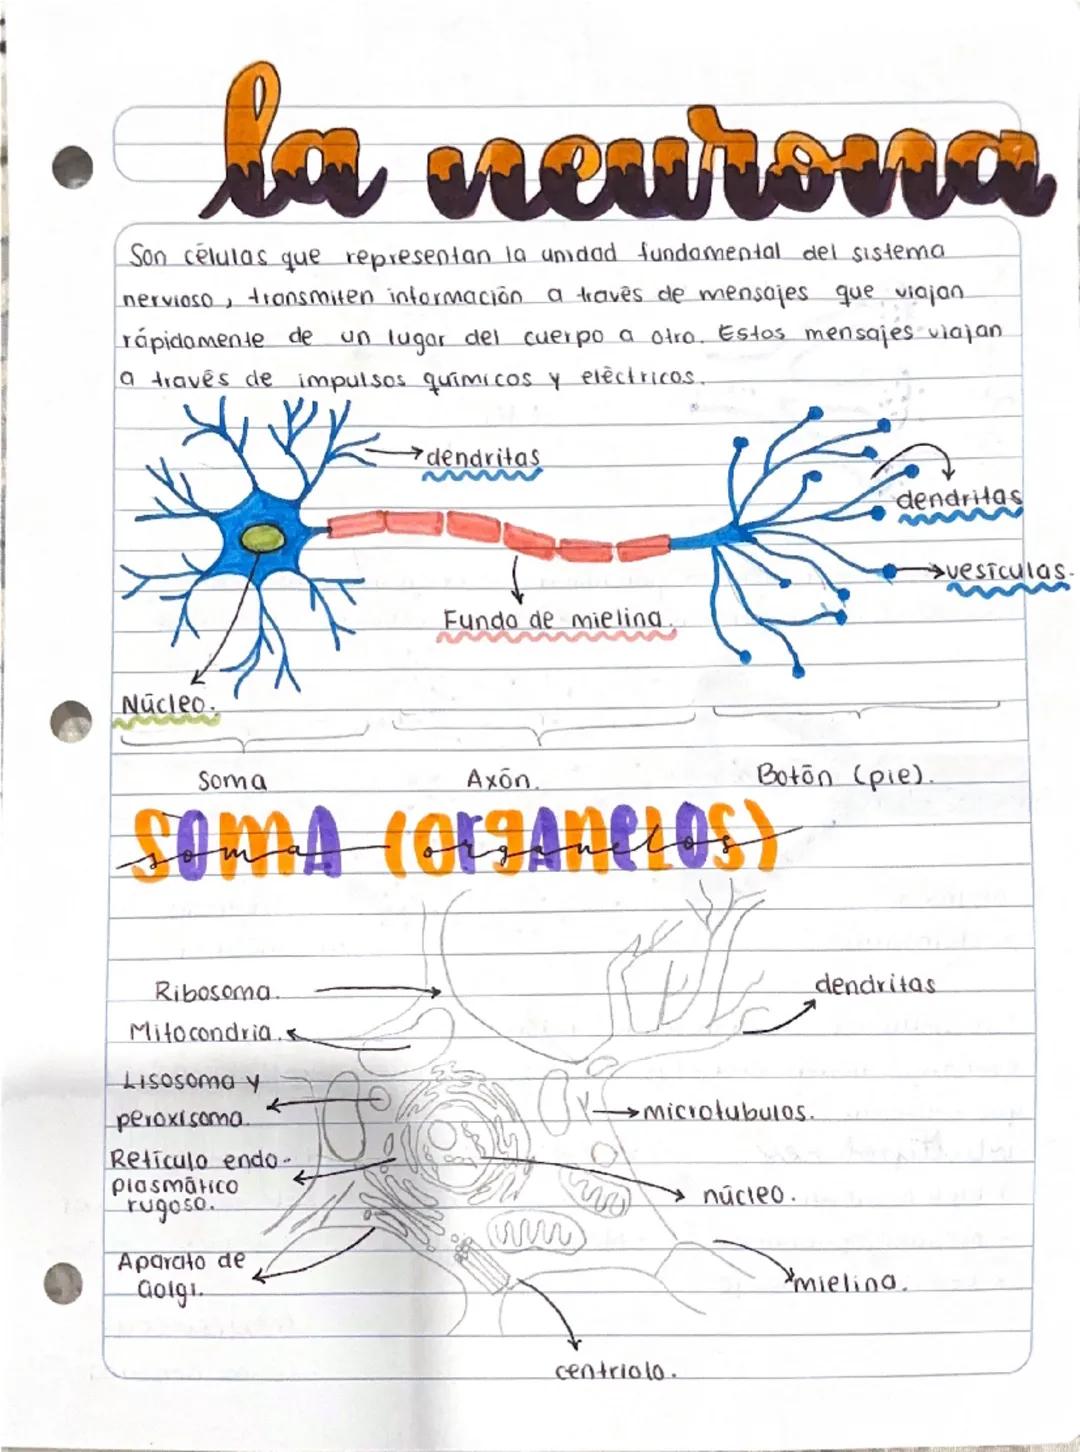 la neurona
Son células que representan la unidad fundamental del sistema
nervioso, transmiten información a través de mensajes que viajan
rápidamente de un lugar del cuerpo a otro. Estos mensajes viajan
a través de impulsos químicos y eléctricos.
dendritas
dendritas
vesículas.
Fundo de mielina.
Núcleo.
Soma
Axón.
Botón (pie).
SOMA (ORGANELOS)
soma organelos
Ribosoma.
dendritas
Mitocondria.
Lisosoma y
peroxisoma.
microtubulos.
Retículo endo-
plasmático
rugoso.
núcleo.
Aparato de
Golgi.
mielina.
centriolo.